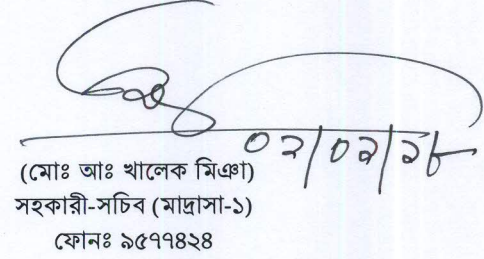 ০২/০২/১৮
(মোঃ আঃ খালেক মিঞা)
সহকারী-সচিব (মাদ্রাসা-১)
ফোনঃ ৯৫৭৭৪২৪